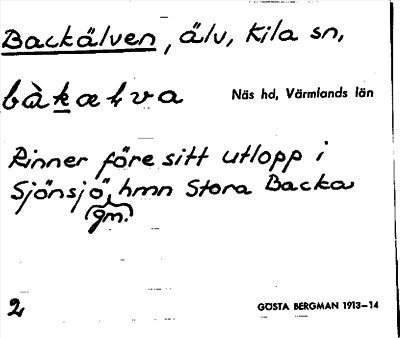 Backälven, älv, Kila sn,
bàkælva Näs hd, Värmlands län
Rinner före sitt utlopp i
Sjönsjö, hmn Stora Backa
gm.
2 GÖSTA BERGMAN 1913–14